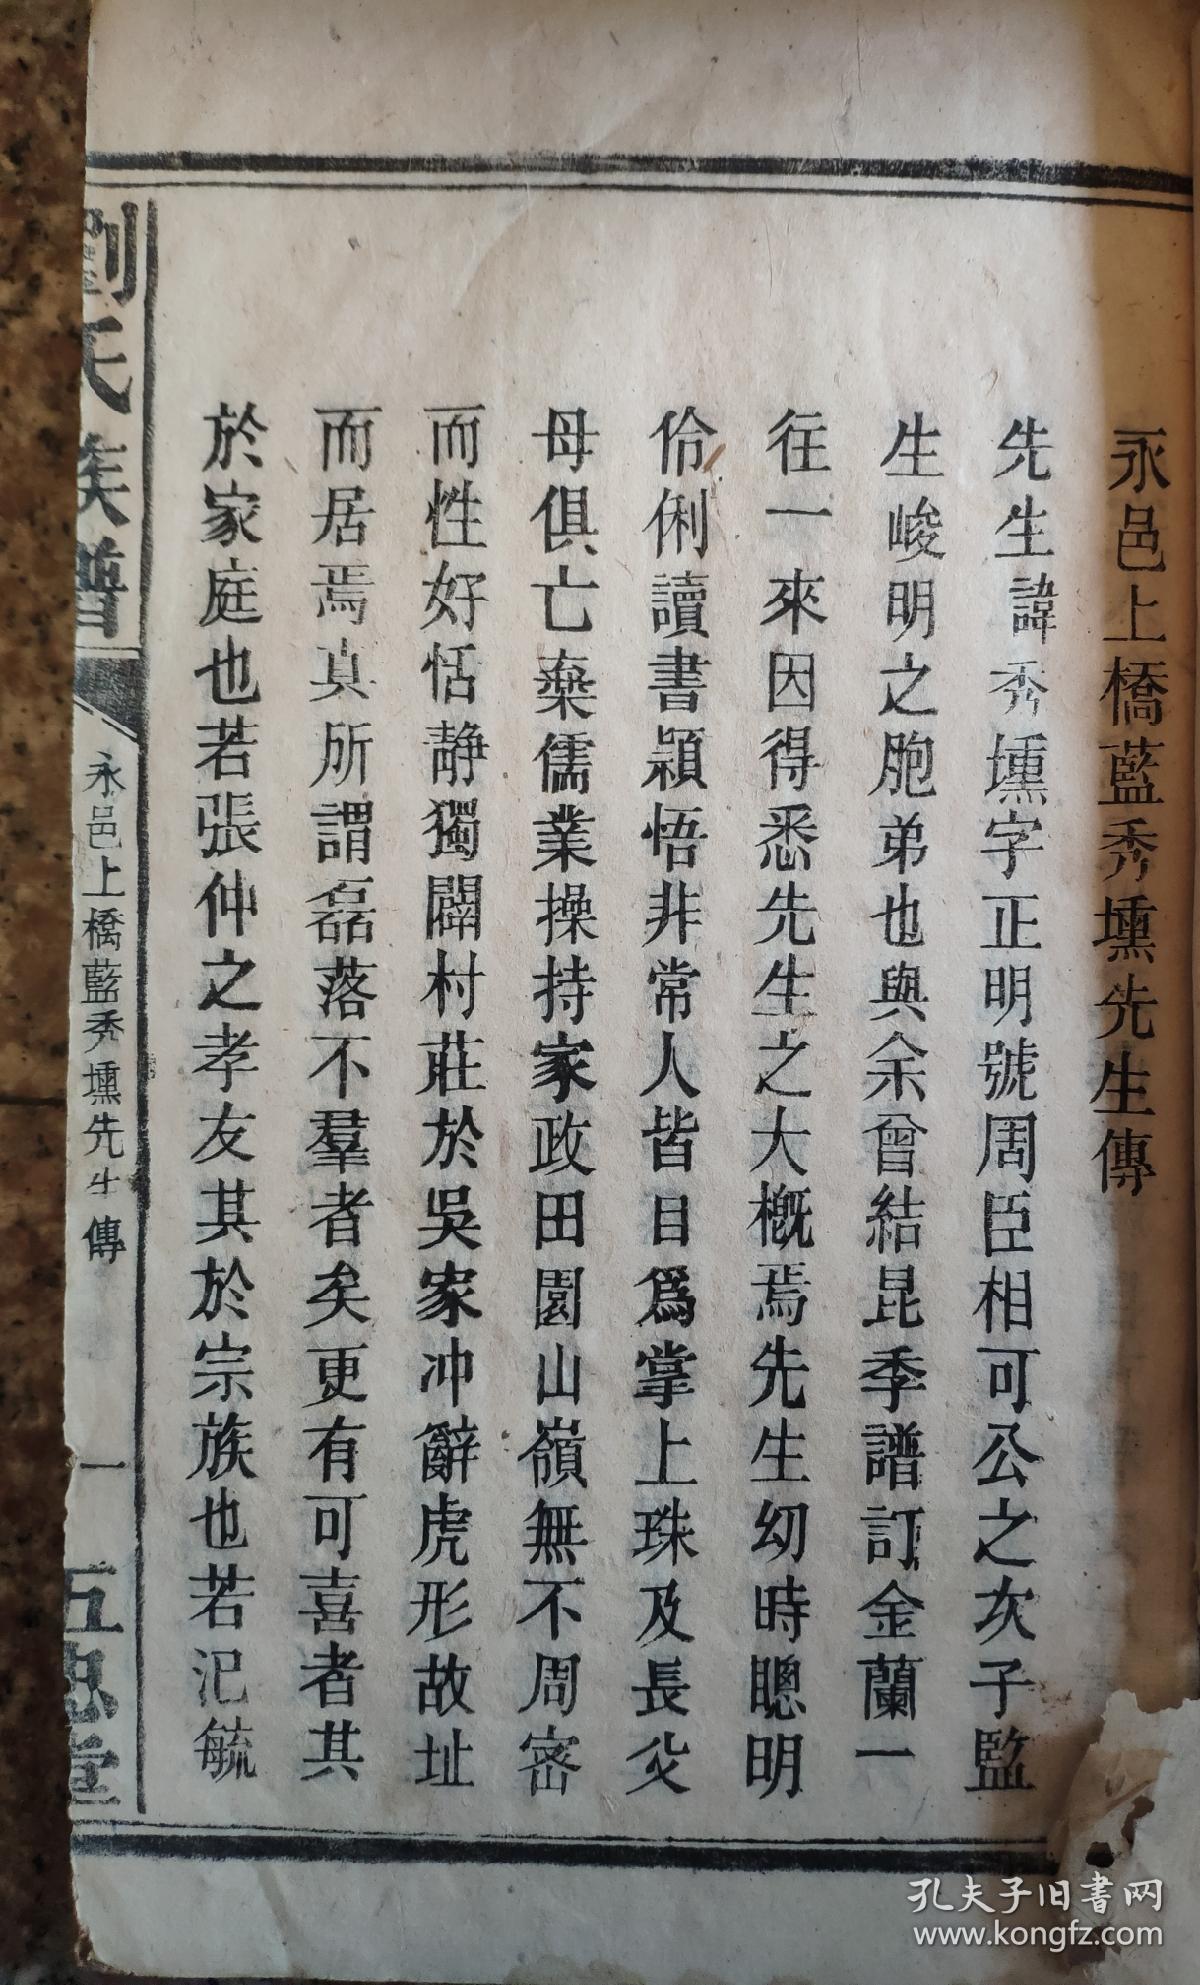 永邑上橋藍秀壎先生傳
先生諱秀壎字正明號周臣相可公之次子監
生峻明之胞弟也與余曾結昆季譜訂金蘭一
往一來因得悉先生之大概焉先生幼時聰明
伶俐讀書穎悟非常人皆目爲掌上珠及長父
母俱亡棄儒業操持家政田園山嶺無不周密
而性好恬静獨闢村莊於吳家冲辭虎形故址
而居焉真所謂磊落不羣者矣更有可喜者其
於家庭也若張仲之孝友其於宗族也若氾毓
劉氏族譜
永邑上橋藍秀壎先生傳
一
五忠堂
孔夫子旧书网
www.kongfz.com